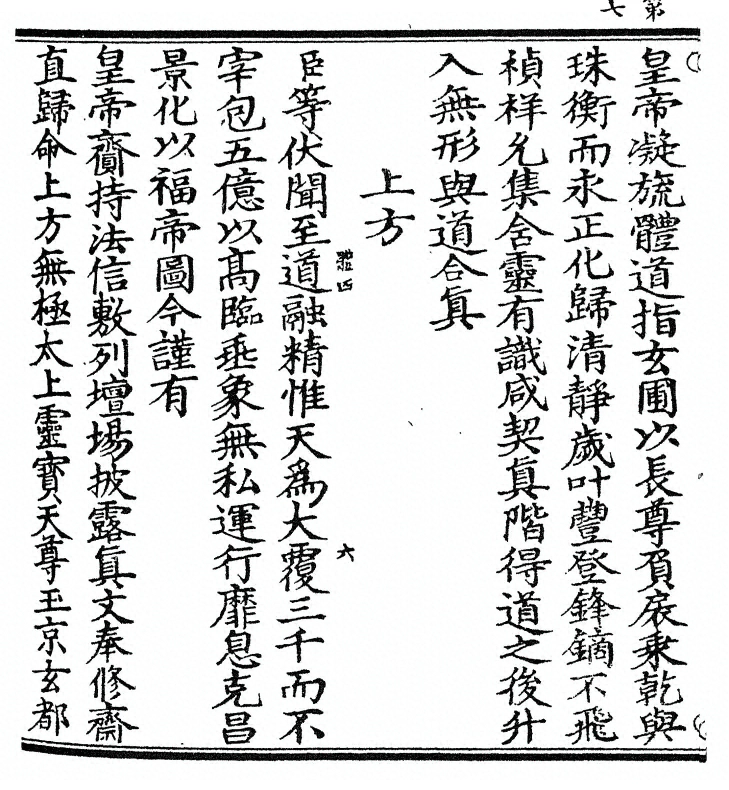 第
七
皇帝凝旒體道指玄圃以長尊負扆乘乾與
珠衡而永正化歸清靜歲叶豐登鋒鏑不飛
禎祥允集含靈有識咸契真階得道之後升
入無形與道合真
上方
臣等伏聞至道融精惟天為大覆三千而不
宰包五億以高臨垂象無私運行靡息克昌
景化以福帝圖今謹有
皇帝齎持法信敷列壇場披露真文奉修齋
直歸命上方無極太上靈寶天尊玉京玄都
體四
六